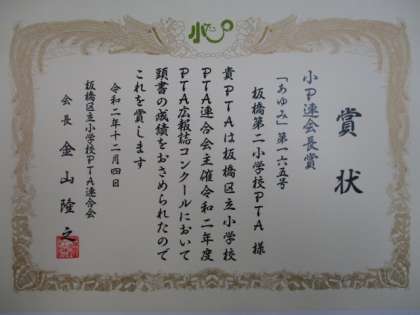 小P
賞状
小P連会長賞
「あゆみ」第一六五号
板橋第二小学校PTA 様
貴PTAは板橋区立小学校
PTA連合会主催令和二年度
PTA広報誌コンクールにおいて
頭書の成績をおさめられたので
これを賞します
令和二年十二月四日
板橋区立小学校PTA連合会
会長 金山隆之